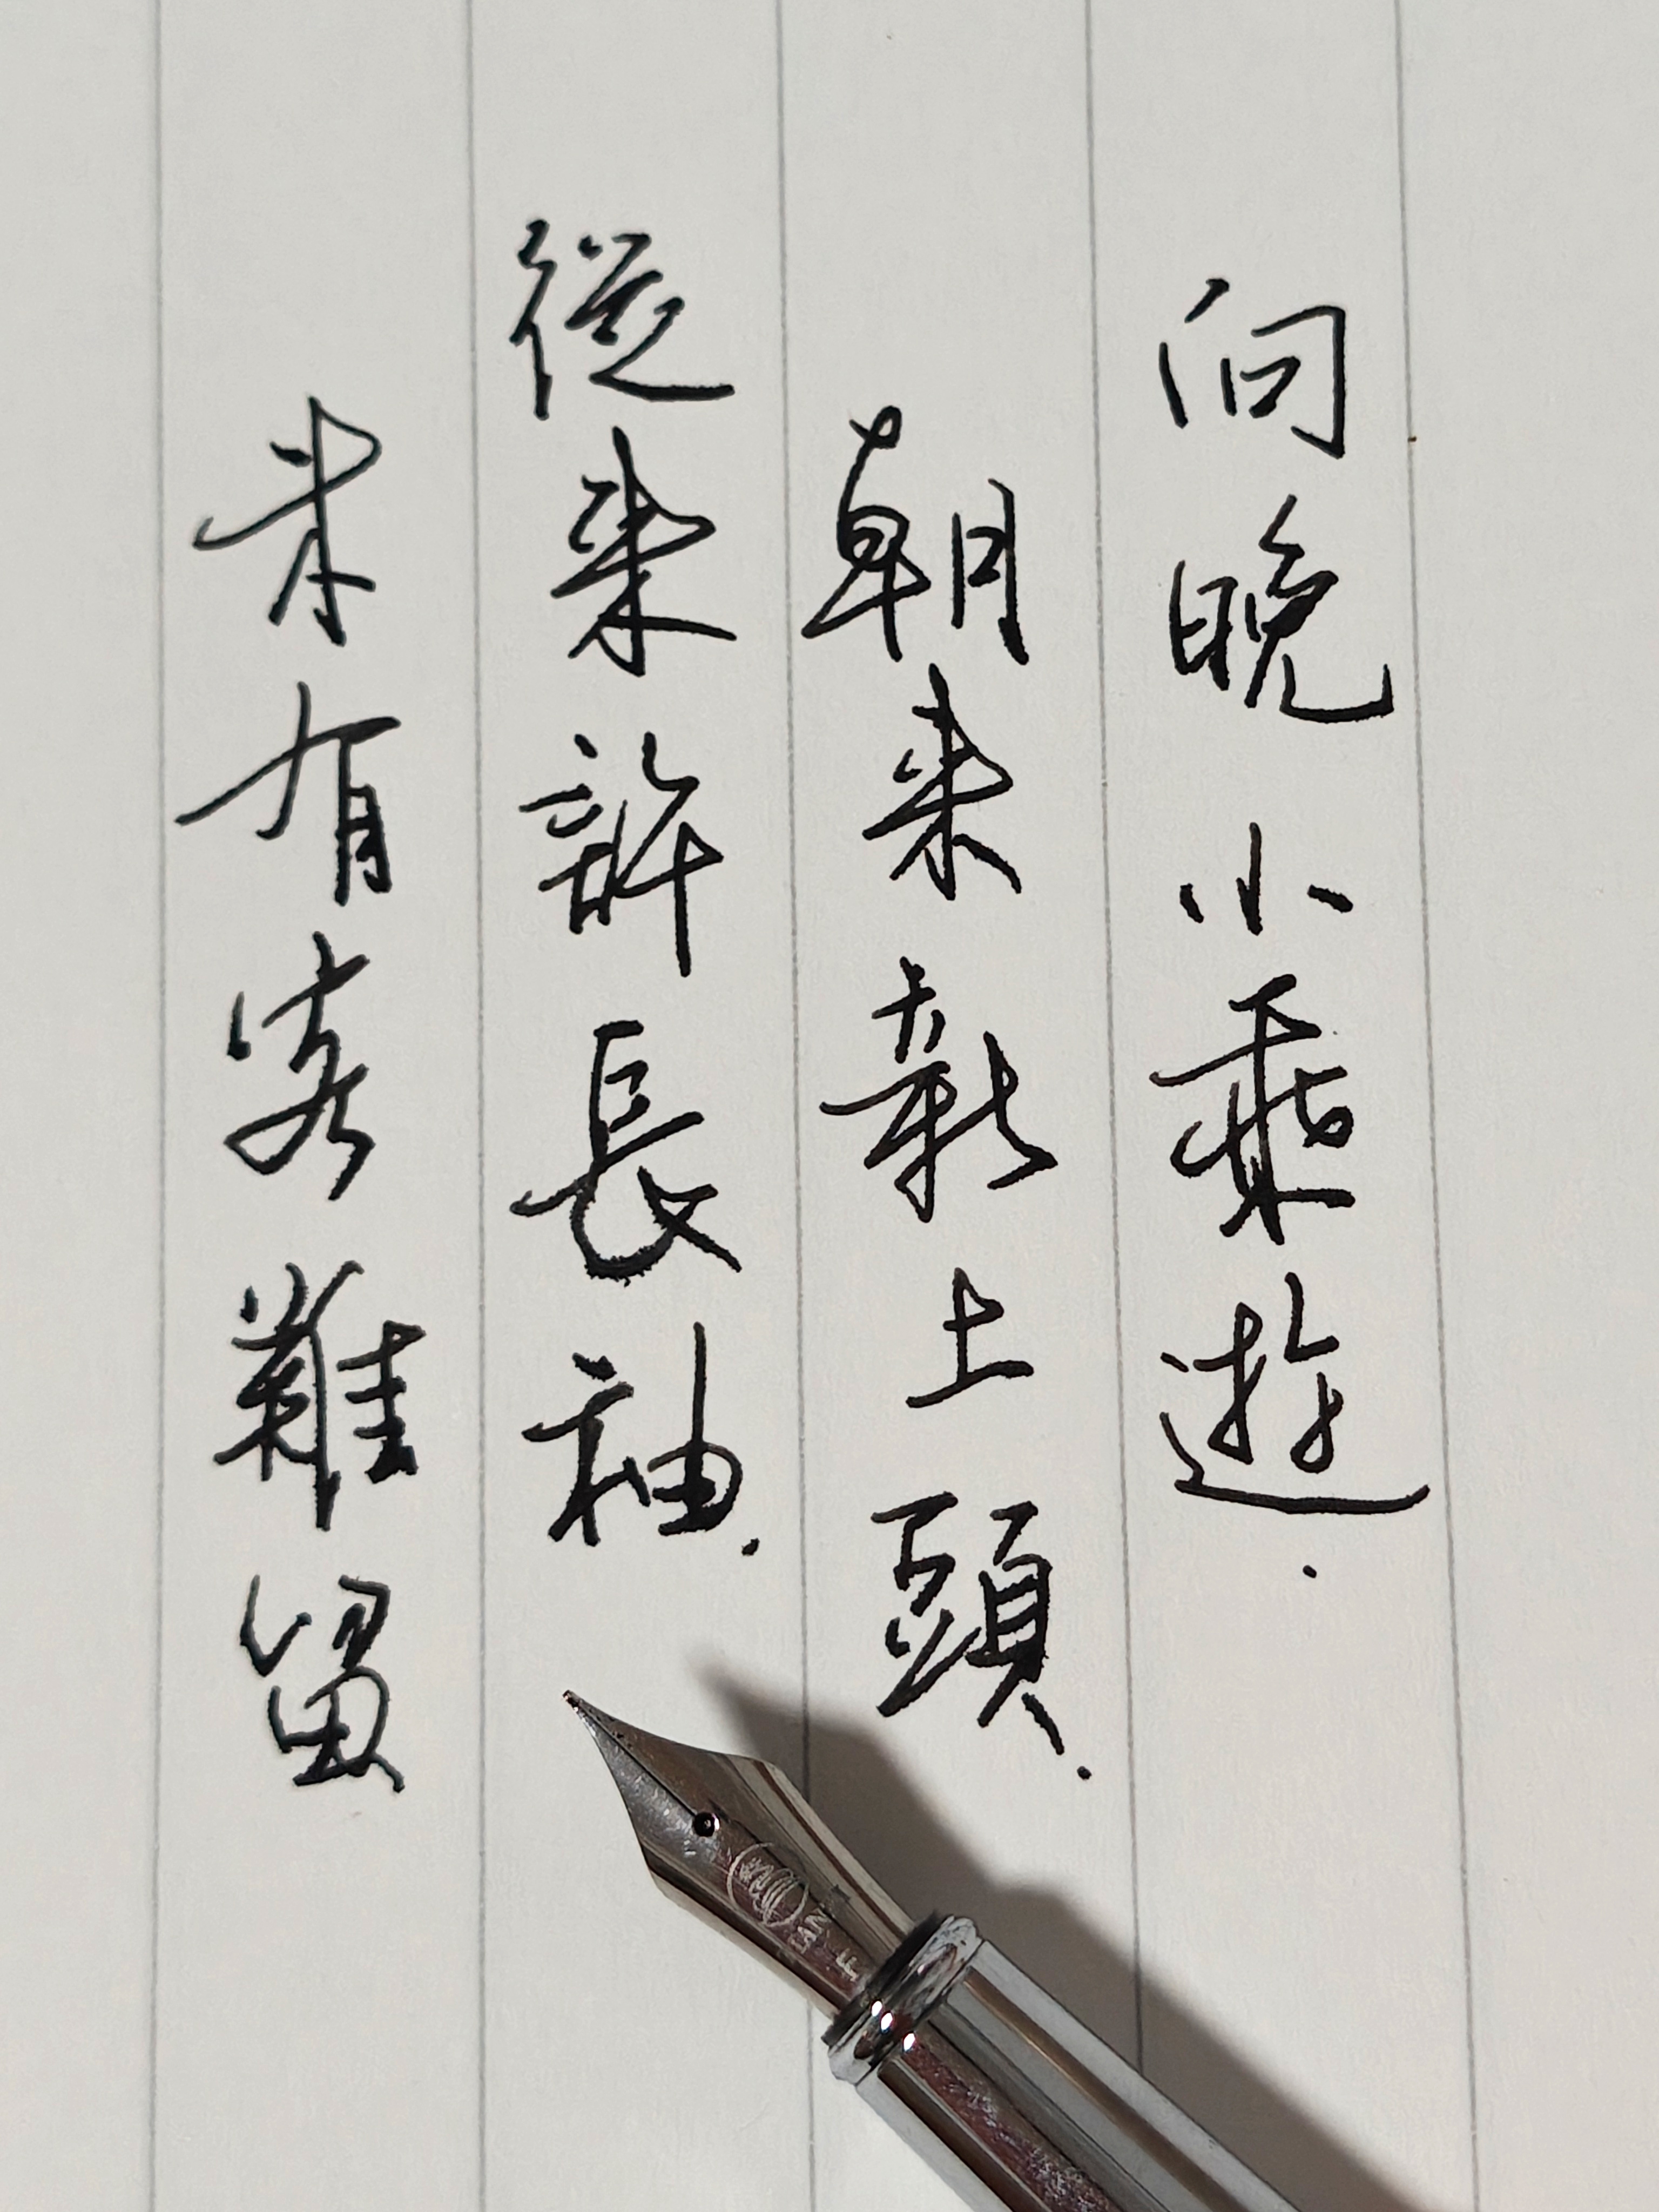 向晚小乘遊.
朝来新上頭.
從来許長袖.
未有客難留